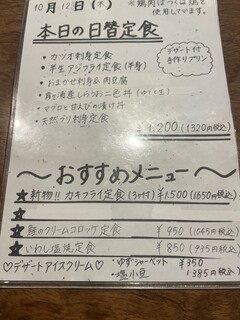 10月12日(木)
※鶏肉はつくば鶏を使用しています。
本日の日替定食
・カツオ刺身定食
・半生アジフライ定食(半身)
デザート付
手作りプリン
・おまかせ刺身&肉豆腐
しらす二色丼
・マグロと甘えびの漬け丼
・天然ブリ刺身定食
¥1,200(1320円税込)
〜おすすめメニュー〜
★新物!! カキフライ定食(3ヶ付)¥1,500(1650円税込)
★鮭のクリームコロッケ定食 ¥950(1045円税込)
★いわし塩焼定食 ¥850(935円税込)
♡デザートアイスクリーム♡ ・ゆずシャーベット ¥350
・塩小豆 385円税込)